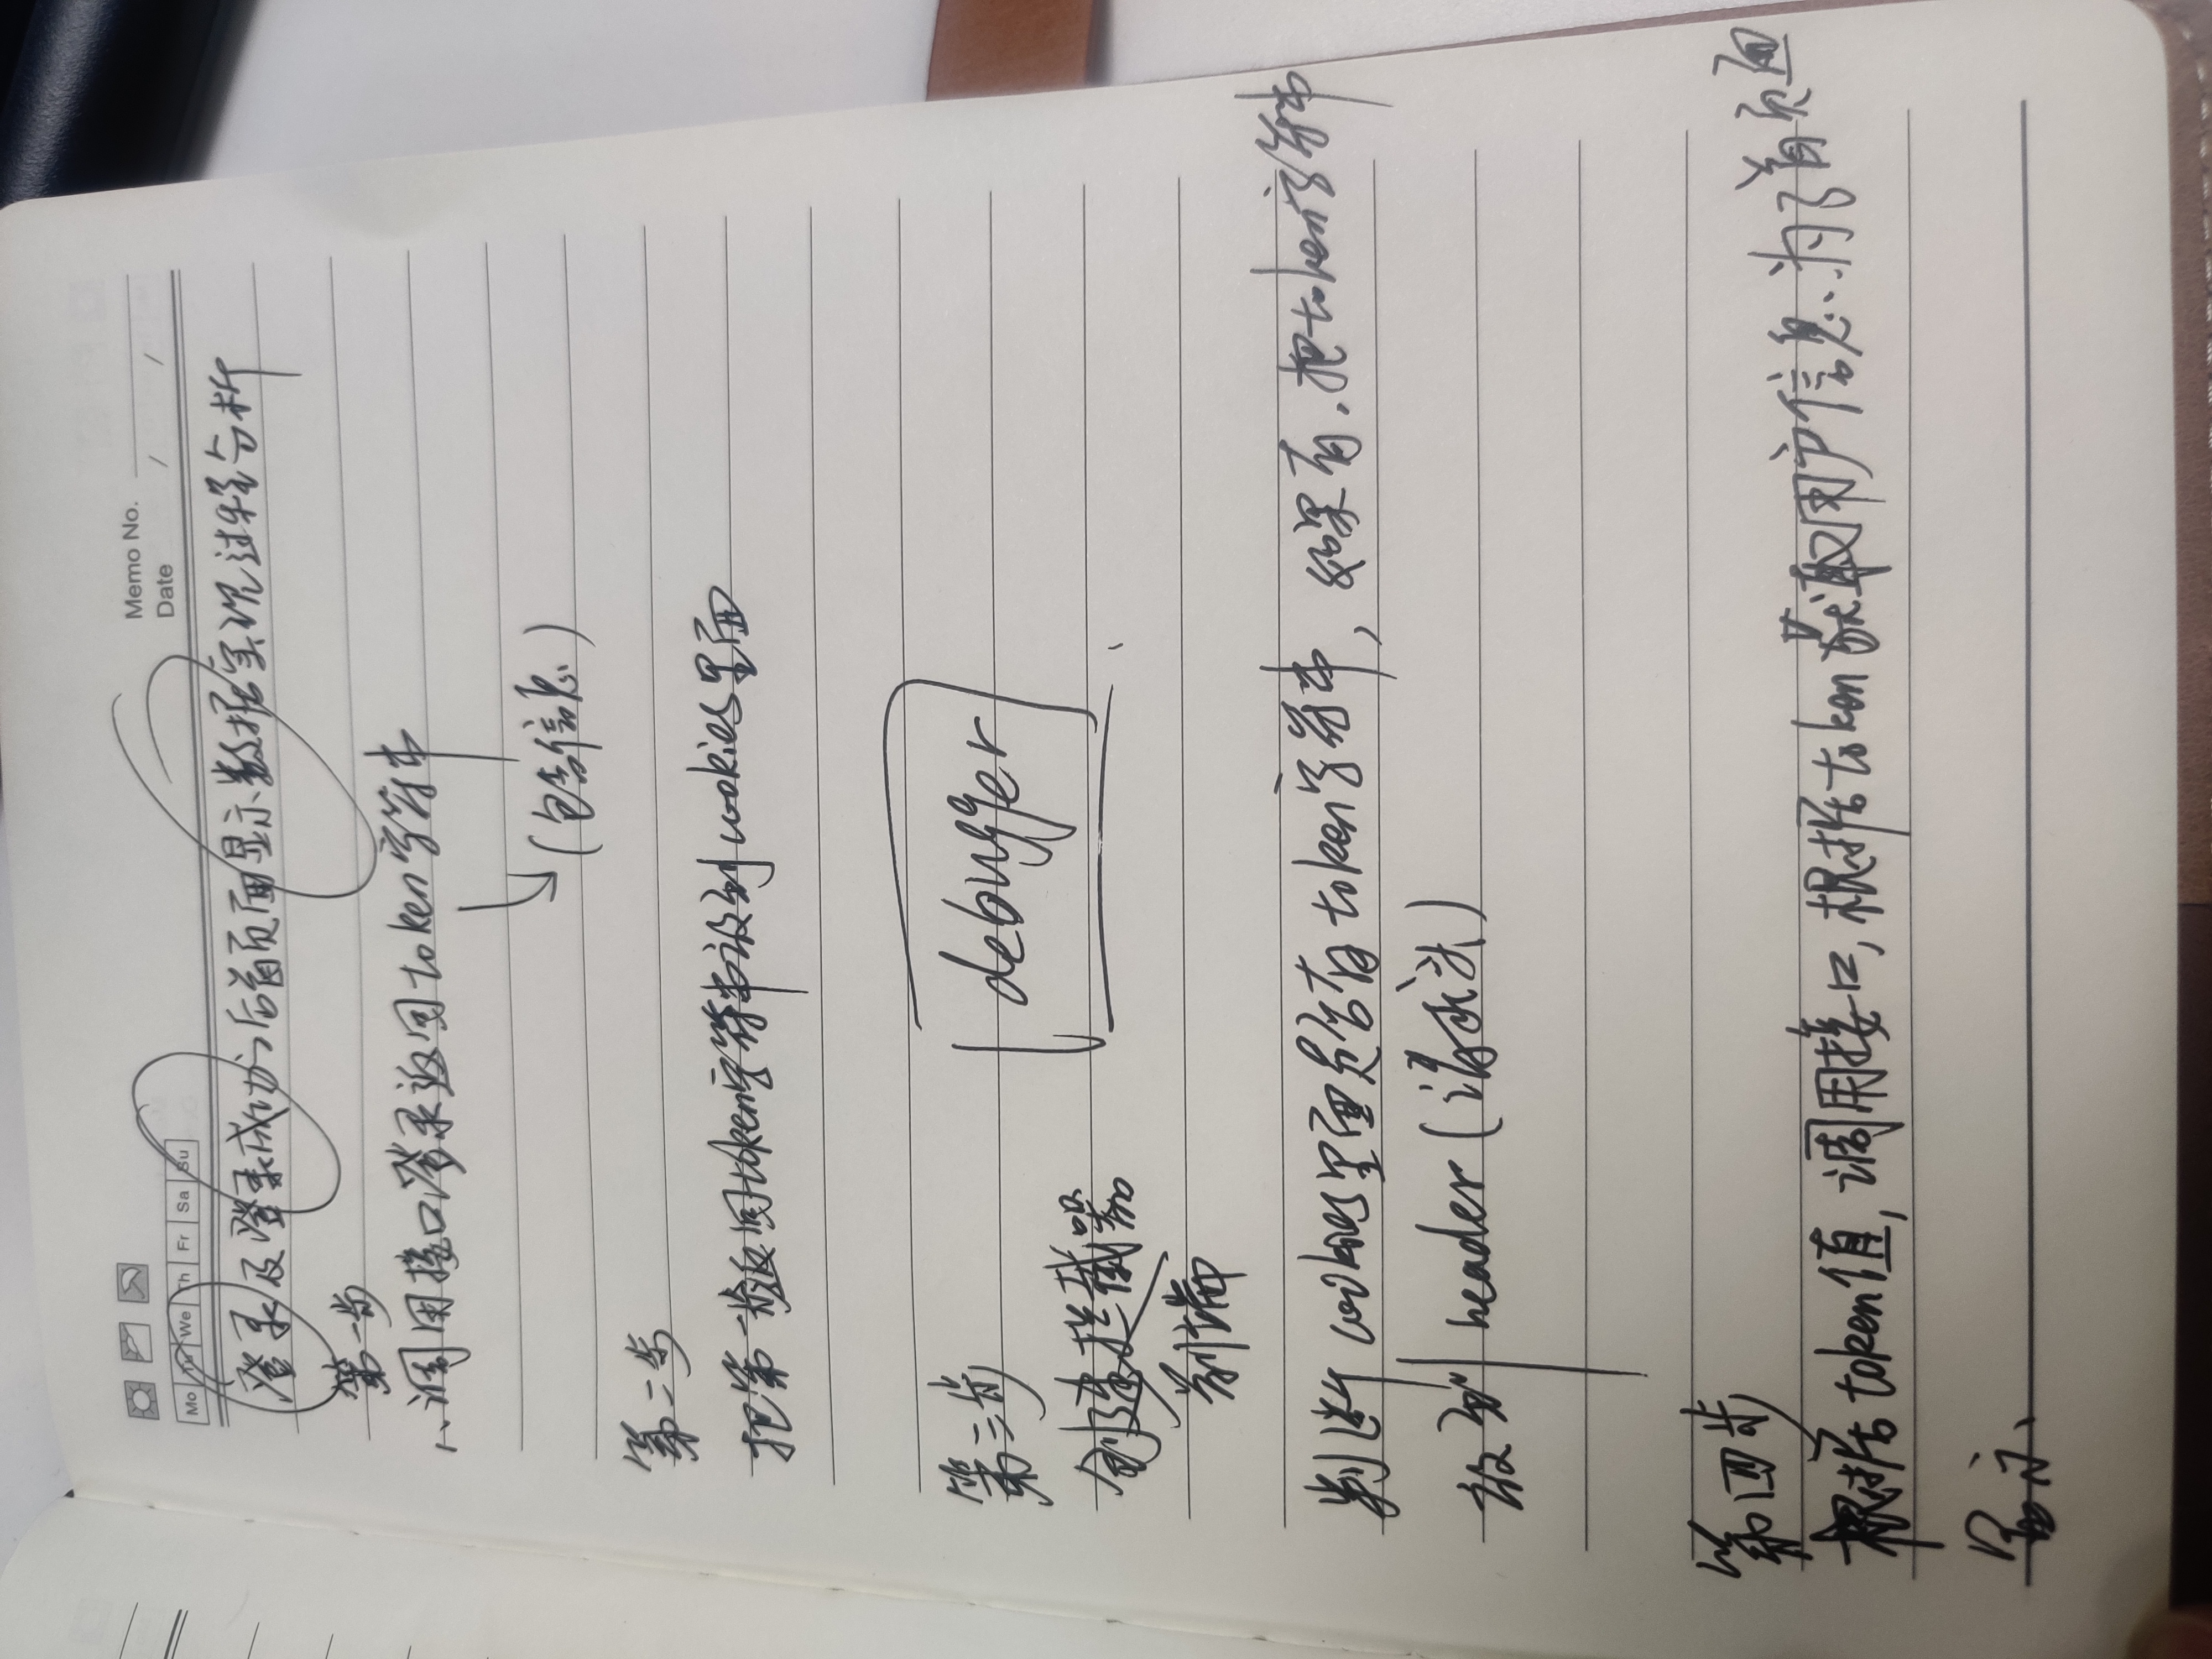 Memo No.
Date / /
Mo Tu We Th Fr Sa Su
登录及登录成功之后首页面显示数据实现过程分析
第一步
1、调用接口登录返回token字符串
(包含信息)
第二步
把第一步返回token字符串放到cookies里面
第三步
debugger
创建拦截器
前端
判断cookies里面是否有token字符串,如果有.把token字符串
放到header(请求头)
第四步
根据token值,调用接口,根据token获取用户信息、为了首页面
显示、